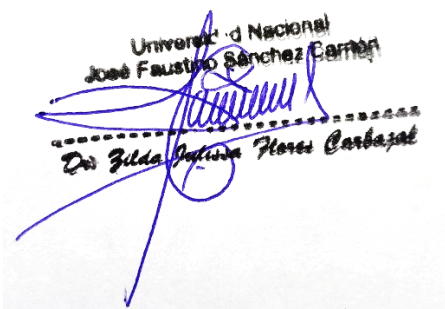 Universidad Nacional
José Faustino Sánchez Carrión
Dra Zilda Julissa Flores Carbajal